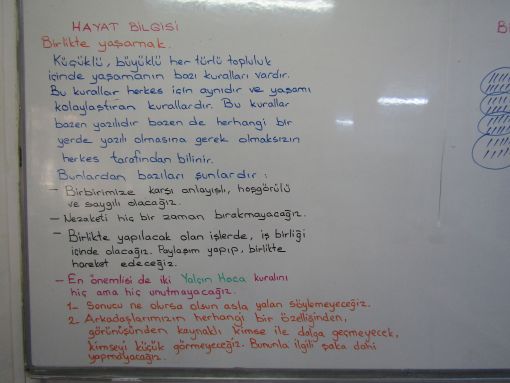 HAYAT BİLGİSİ
Birlikte yaşamak.
Küçüklü, büyüklü her türlü topluluk
içinde yaşamanın bazı kuralları vardır.
Bu kurallar herkes için aynıdır ve yaşamı
kolaylaştıran kurallardır. Bu kurallar
bazen yazılıdır bazen de herhangi bir
yerde yazılı olmasına gerek olmaksızın
herkes tarafından bilinir.
Bunlardan bazıları şunlardır :
- Birbirimize karşı anlayışlı, hoşgörülü
ve saygılı olacağız.
- Nezaketi hiç bir zaman bırakmayacağız.
- Birlikte yapılacak olan işlerde, iş birliği
içinde olacağız. Paylaşım yapıp, birlikte
hareket edeceğiz.
- En önemlisi de iki Yalçın Hoca kuralını
hiç ama hiç unutmayacağız.
1- Sonucu ne olursa olsun asla yalan söylemeyeceğiz.
2- Arkadaşlarımızın herhangi bir özelliğinden,
görünüşünden kaynaklı, kimse ile dalga geçmeyecek,
kimseyi küçük görmeyeceğiz. Bununla ilgili şaka dahi
yapmayacağız.